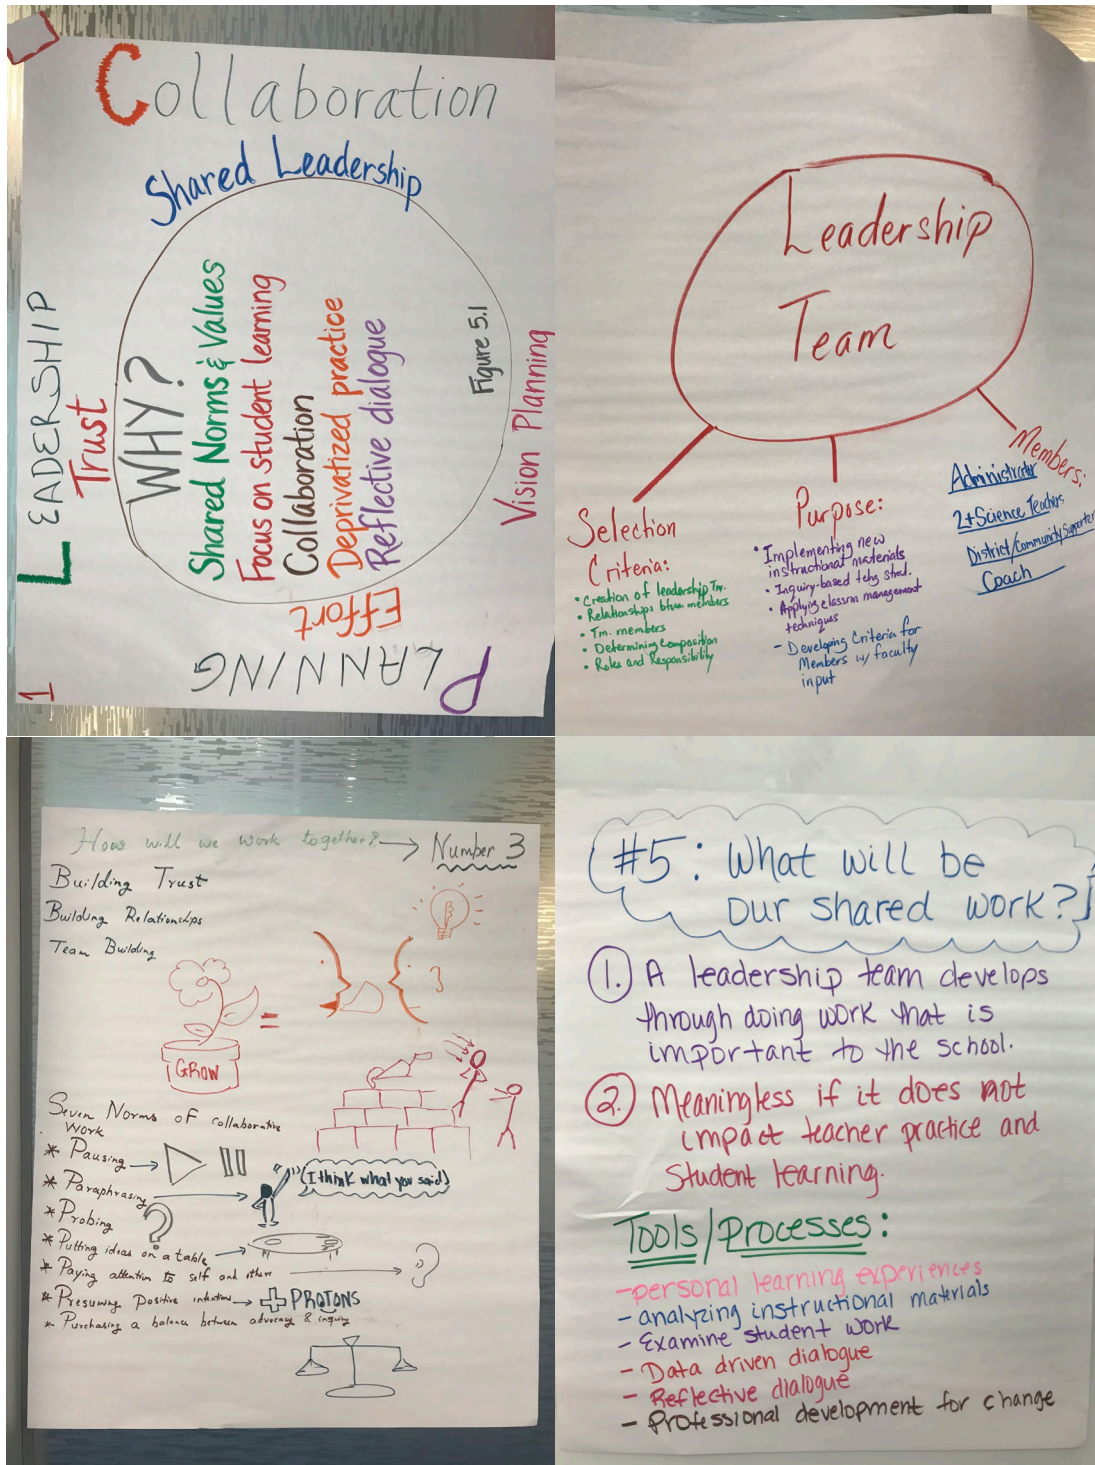 Collaboration
Shared Leadership
LEADERSHIP
Trust
WHY?
Shared Norms & Values
Focus on student learning
Collaboration
Deprivatized practice
Reflective dialogue
Figure 5.1
Vision Planning
Effort
PLANNING
1
Leadership
Team
Selection
Criteria:
• Creation of leadership Tm.
• Relationships btwn. members
• Tm. members
• Determining Composition
• Roles and Responsibility
Purpose:
• Implementing new
instructional materials
• Inquiry-based tchg strat.
• Applying classrm management
techniques
- Developing Criteria for
Members w/ faculty
input
Members:
Administrator
2+ Science Teachers
District/Community Supporter
Coach
How will we work together? → Number 3
Building Trust
Building Relationships
Team Building
GROW
=
Seven Norms of collaborative
Work
* Pausing →
* Paraphrasing →
(I think what you said)
* Probing ?
* Putting ideas on a table →
* Paying attention to self and others →
* Presuming Positive intention → + PROTONS
* Purchasing a balance between advocacy & inquiry
#5: What will be
our shared work?
1. A leadership team develops
through doing work that is
important to the school.
2. Meaningless if it does not
impact teacher practice and
Student learning.
Tools/Processes:
- personal learning experiences
- analyzing instructional materials
- Examine student work
- Data driven dialogue
- Reflective dialogue
- Professional development for change